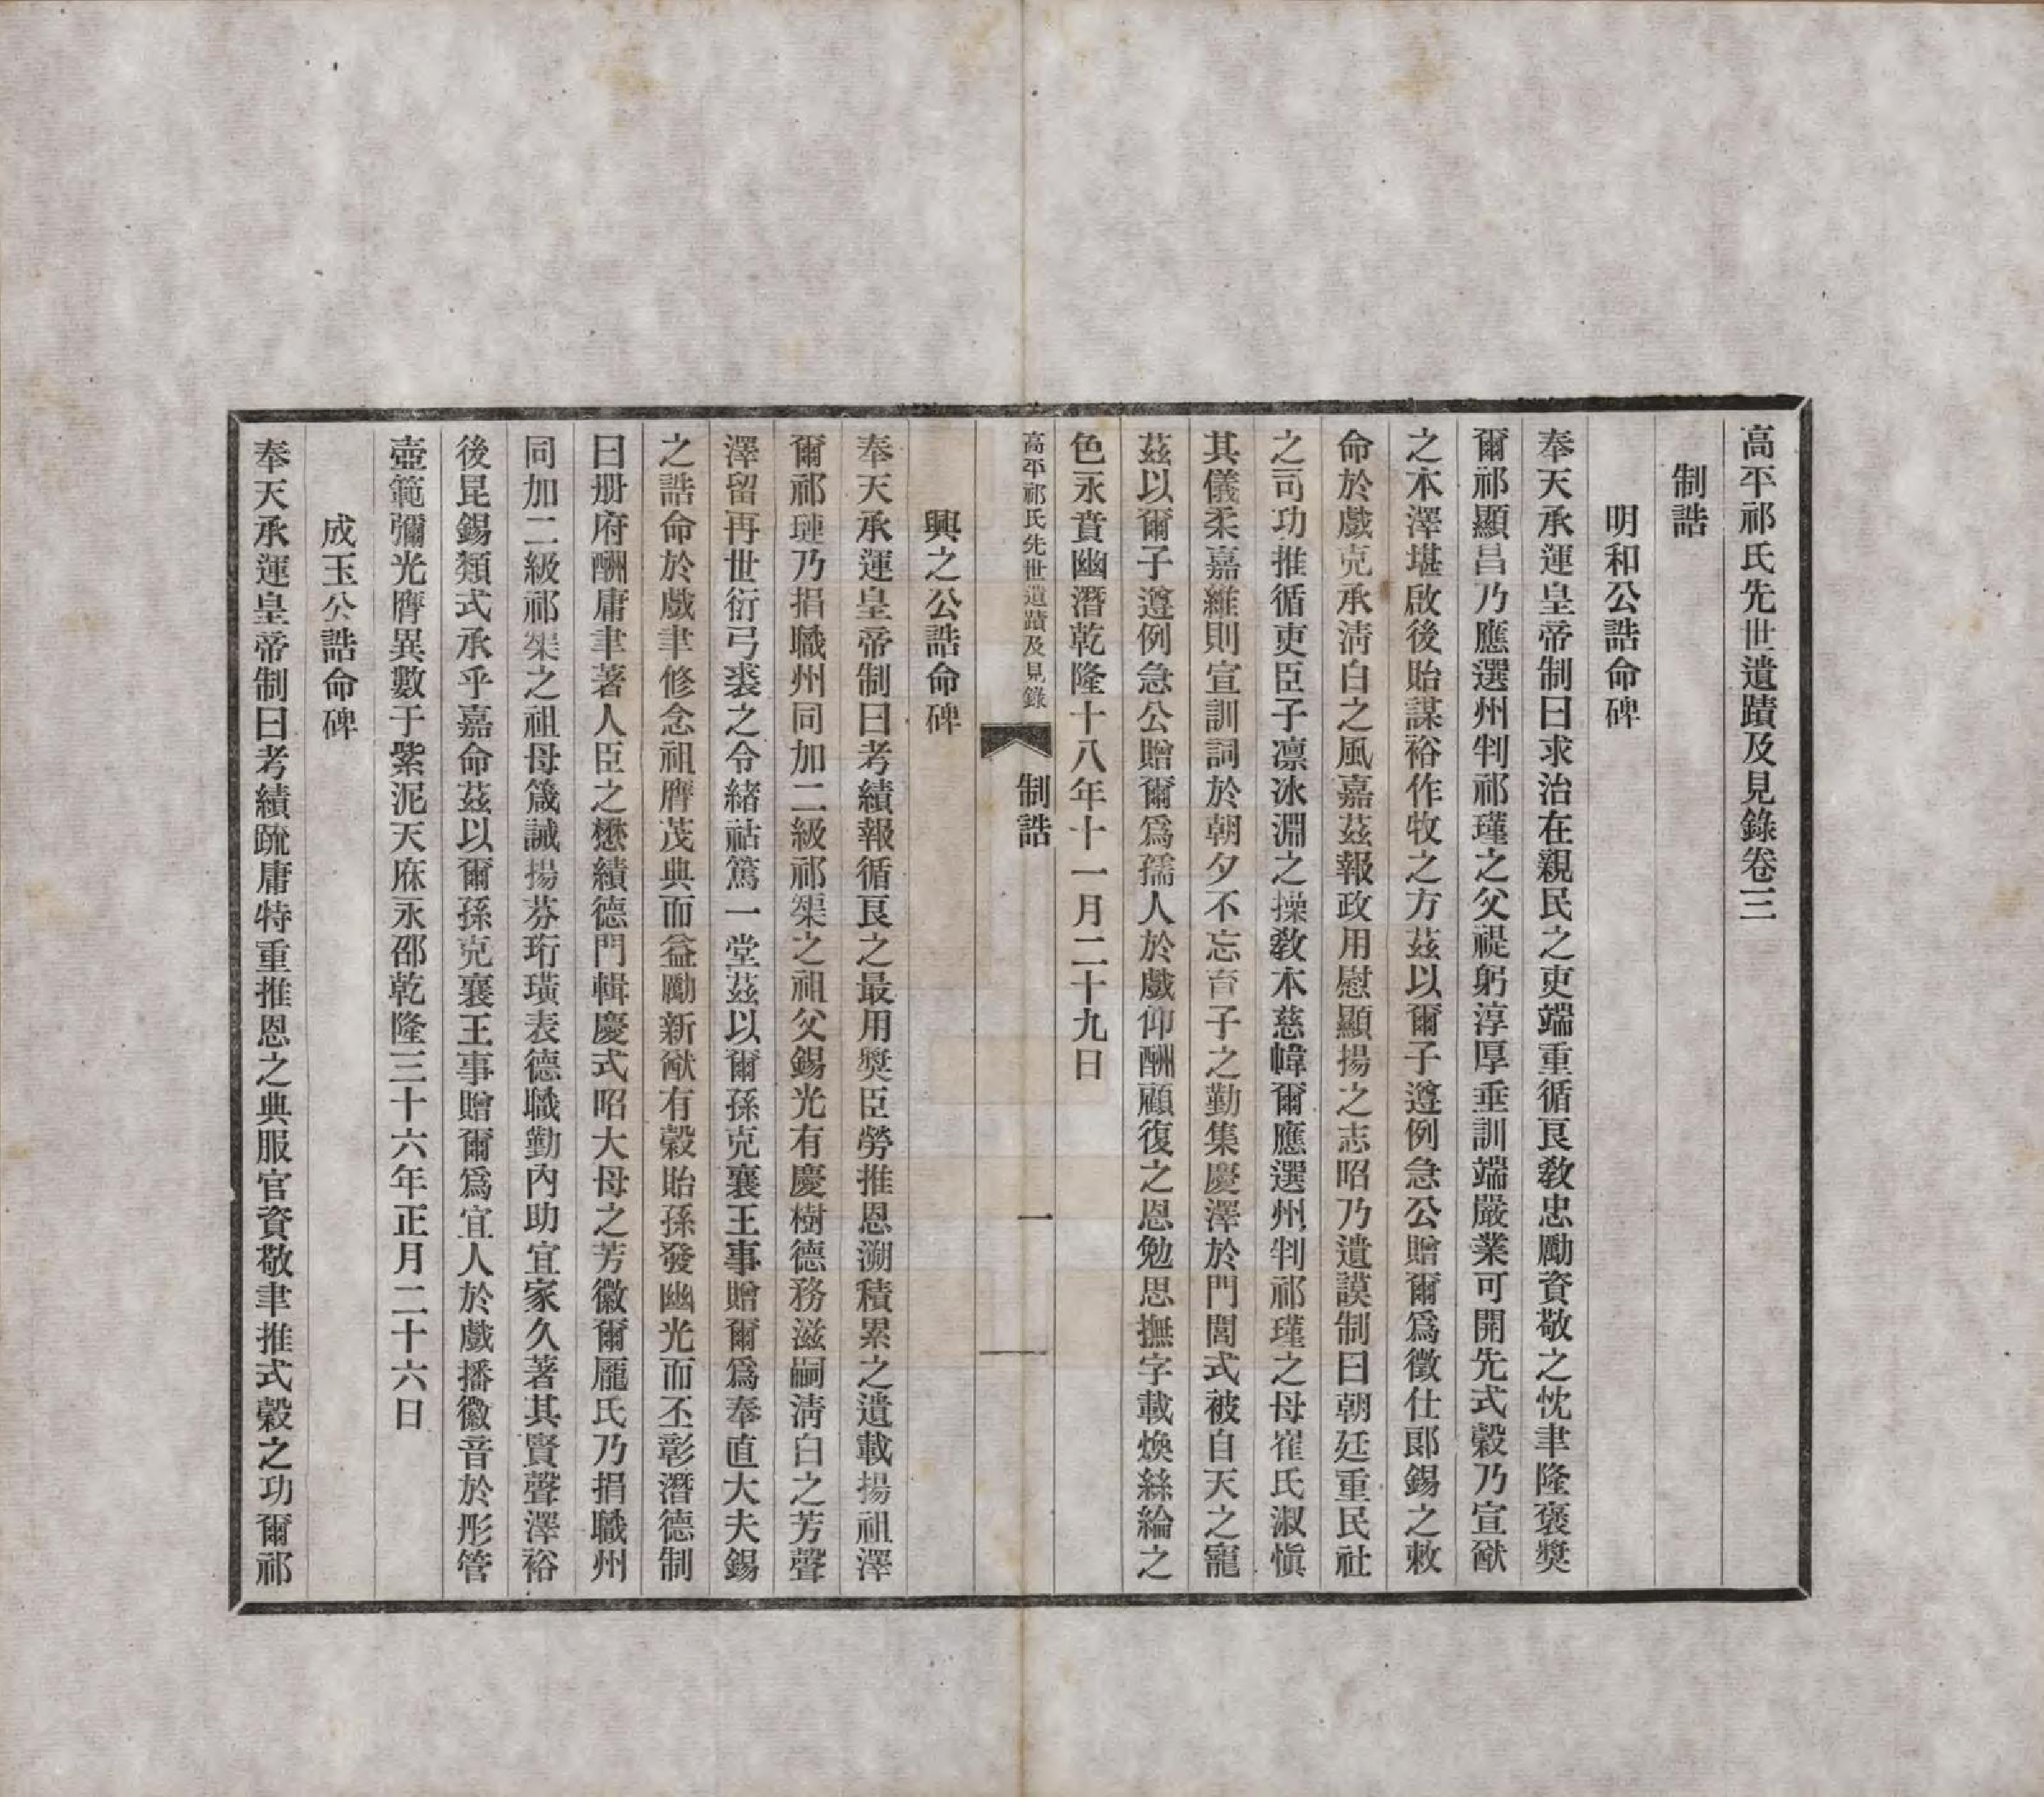 高平祁氏先世遺蹟及見錄卷三
制誥
明和公誥命碑
奉天承運皇帝制曰求治在親民之吏端重循良敎忠勵資敬之忱聿隆褒獎
爾祁顯昌乃應選州判祁瑾之父禔躬淳厚垂訓端嚴業可開先式穀乃宣猷
之本澤堪啟後貽謀裕作牧之方茲以爾子遵例急公贈爾爲徵仕郎錫之敕
命於戲克承淸白之風嘉茲報政用慰顯揚之志昭乃遺謨制曰朝廷重民社
之司功推循吏臣子凛冰淵之操敎本慈幃爾應選州判祁瑾之母崔氏淑愼
其儀柔嘉維則宣訓詞於朝夕不忘育子之勤集慶澤於門閭式被自天之寵
茲以爾子遵例急公贈爾爲孺人於戲仰酬顧復之恩勉思撫字載煥絲綸之
色永賁幽潛乾隆十八年十一月二十九日
高平祁氏先世遺蹟及見錄
制誥
一
興之公誥命碑
奉天承運皇帝制曰考績報循良之最用獎臣勞推恩溯積累之遺載揚祖澤
爾祁璉乃捐職州同加二級祁榘之祖父錫光有慶樹德務滋嗣淸白之芳聲
澤留再世衍弓裘之令緒祜篤一堂茲以爾孫克襄王事贈爾爲奉直大夫錫
之誥命於戲聿修念祖膺茂典而益勵新猷有穀貽孫發幽光而丕彰潛德制
曰册府酬庸聿著人臣之懋績德門輯慶式昭大母之芳徽爾龐氏乃捐職州
同加二級祁榘之祖母箴誡揚芬珩璜表德職勤內助宜家久著其賢聲澤裕
後昆錫類式承乎嘉命茲以爾孫克襄王事贈爾爲宜人於戲播徽音於彤管
壺範彌光膺異數于紫泥天庥永邵乾隆三十六年正月二十六日
成玉公誥命碑
奉天承運皇帝制曰考績疏庸特重推恩之典服官資敬聿推式穀之功爾祁